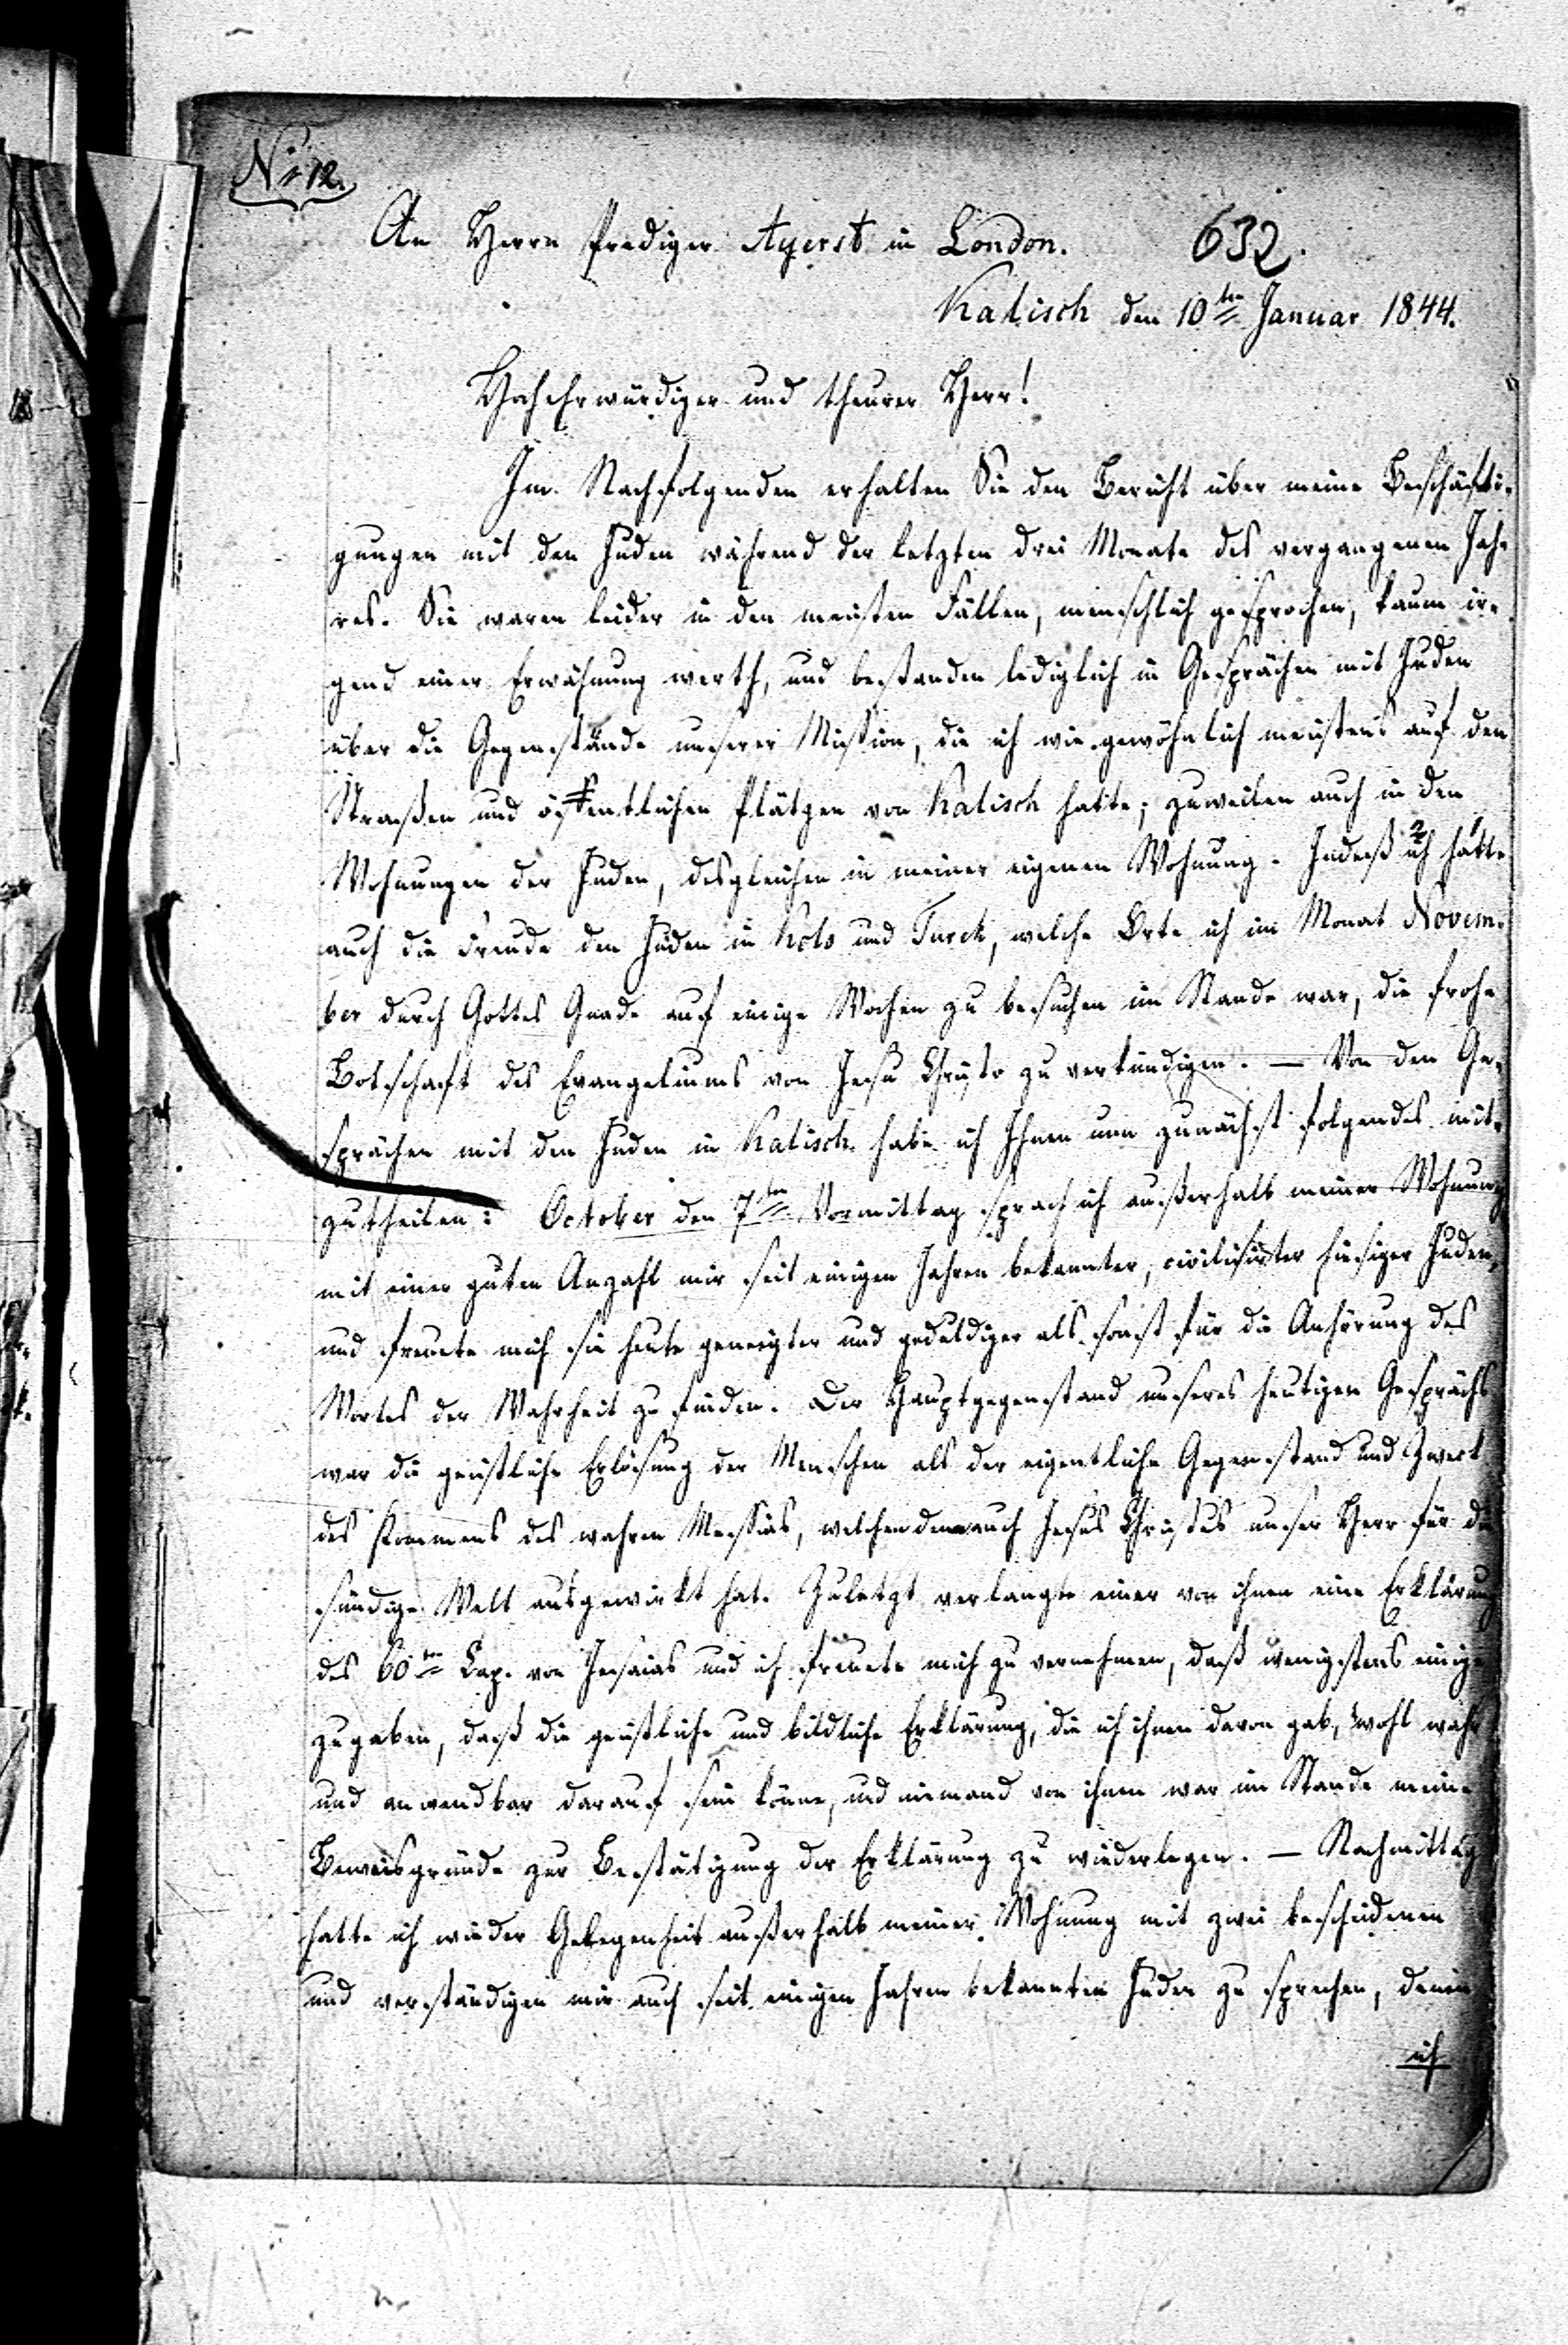 No 12.
An Herrn Prediger Ayerst in London.
632.
Kalisch den 10ten Januar 1844.
Hochehrwürdiger und theurer Herr!
Im Nachfolgenden erhalten Sie den Bericht über meine Beschäfti-
gungen mit den Juden während der letzten drei Monate des vergangenen Jah-
res. Sie waren leider in den meisten Fällen, menschlich gesprochen, kaum ir-
gend einer Erwähnung werth, und bestanden lediglich in Gesprächen mit Juden
über die Gegenstände unserer Mission, die ich wie gewöhnlich meistens auf den
Straßen und öffentlichen Plätzen von Kalisch hatte; zuweilen auch in den
Wohnungen der Juden, desgleichen in meiner eigenen Wohnung. Indeß ich hatte
auch die Freude den Juden in Kolo und Turek, welche Orte ich im Monat Novem-
ber durch Gottes Gnade auf einige Wochen zu besuchen im Stande war, die frohe
Botschaft des Evangeliums von Jesu Christo zu verkündigen. — Von den Ge-
sprächen mit den Juden in Kalisch habe ich Ihnen nun zunächst folgendes mit-
zutheilen: October den 7ten Vormittag sprach ich außerhalb meiner Wohnung
mit einer guten Anzahl mir seit einigen Jahren bekannter, civilisirter hiesiger Juden,
und freuete mich sie heute geneigter und geduldiger als sonst für die Anhörung des
Wortes der Wahrheit zu finden. Der Hauptgegenstand unseres heutigen Gesprächs
war die geistliche Erlösung der Menschen als der eigentliche Gegenstand und Zweck
des Kommens des wahren Messias, welchen denn auch Jesus Christus unser Herr für die
sündige Welt ausgewirkt hat. Zuletzt verlangte einer von ihnen eine Erklärung
des 60ten Cap. von Jesaias und ich freuete mich zu vernehmen, daß wenigstens einige
zugaben, daß die geistliche und bildliche Erklärung, die ich ihnen davon gab, wohl wahr
und anwendbar darauf sein könne, und niemand von ihnen war im Stande meine
Beweisgründe zur Bestätigung der Erklärung zu wiederlegen. — Nachmittag
hatte ich wieder Gelegenheit außerhalb meiner Wohnung mit zwei bescheidenen
und verständigen mir auch seit einigen Jahren bekannten Juden zu sprechen, denen
ich